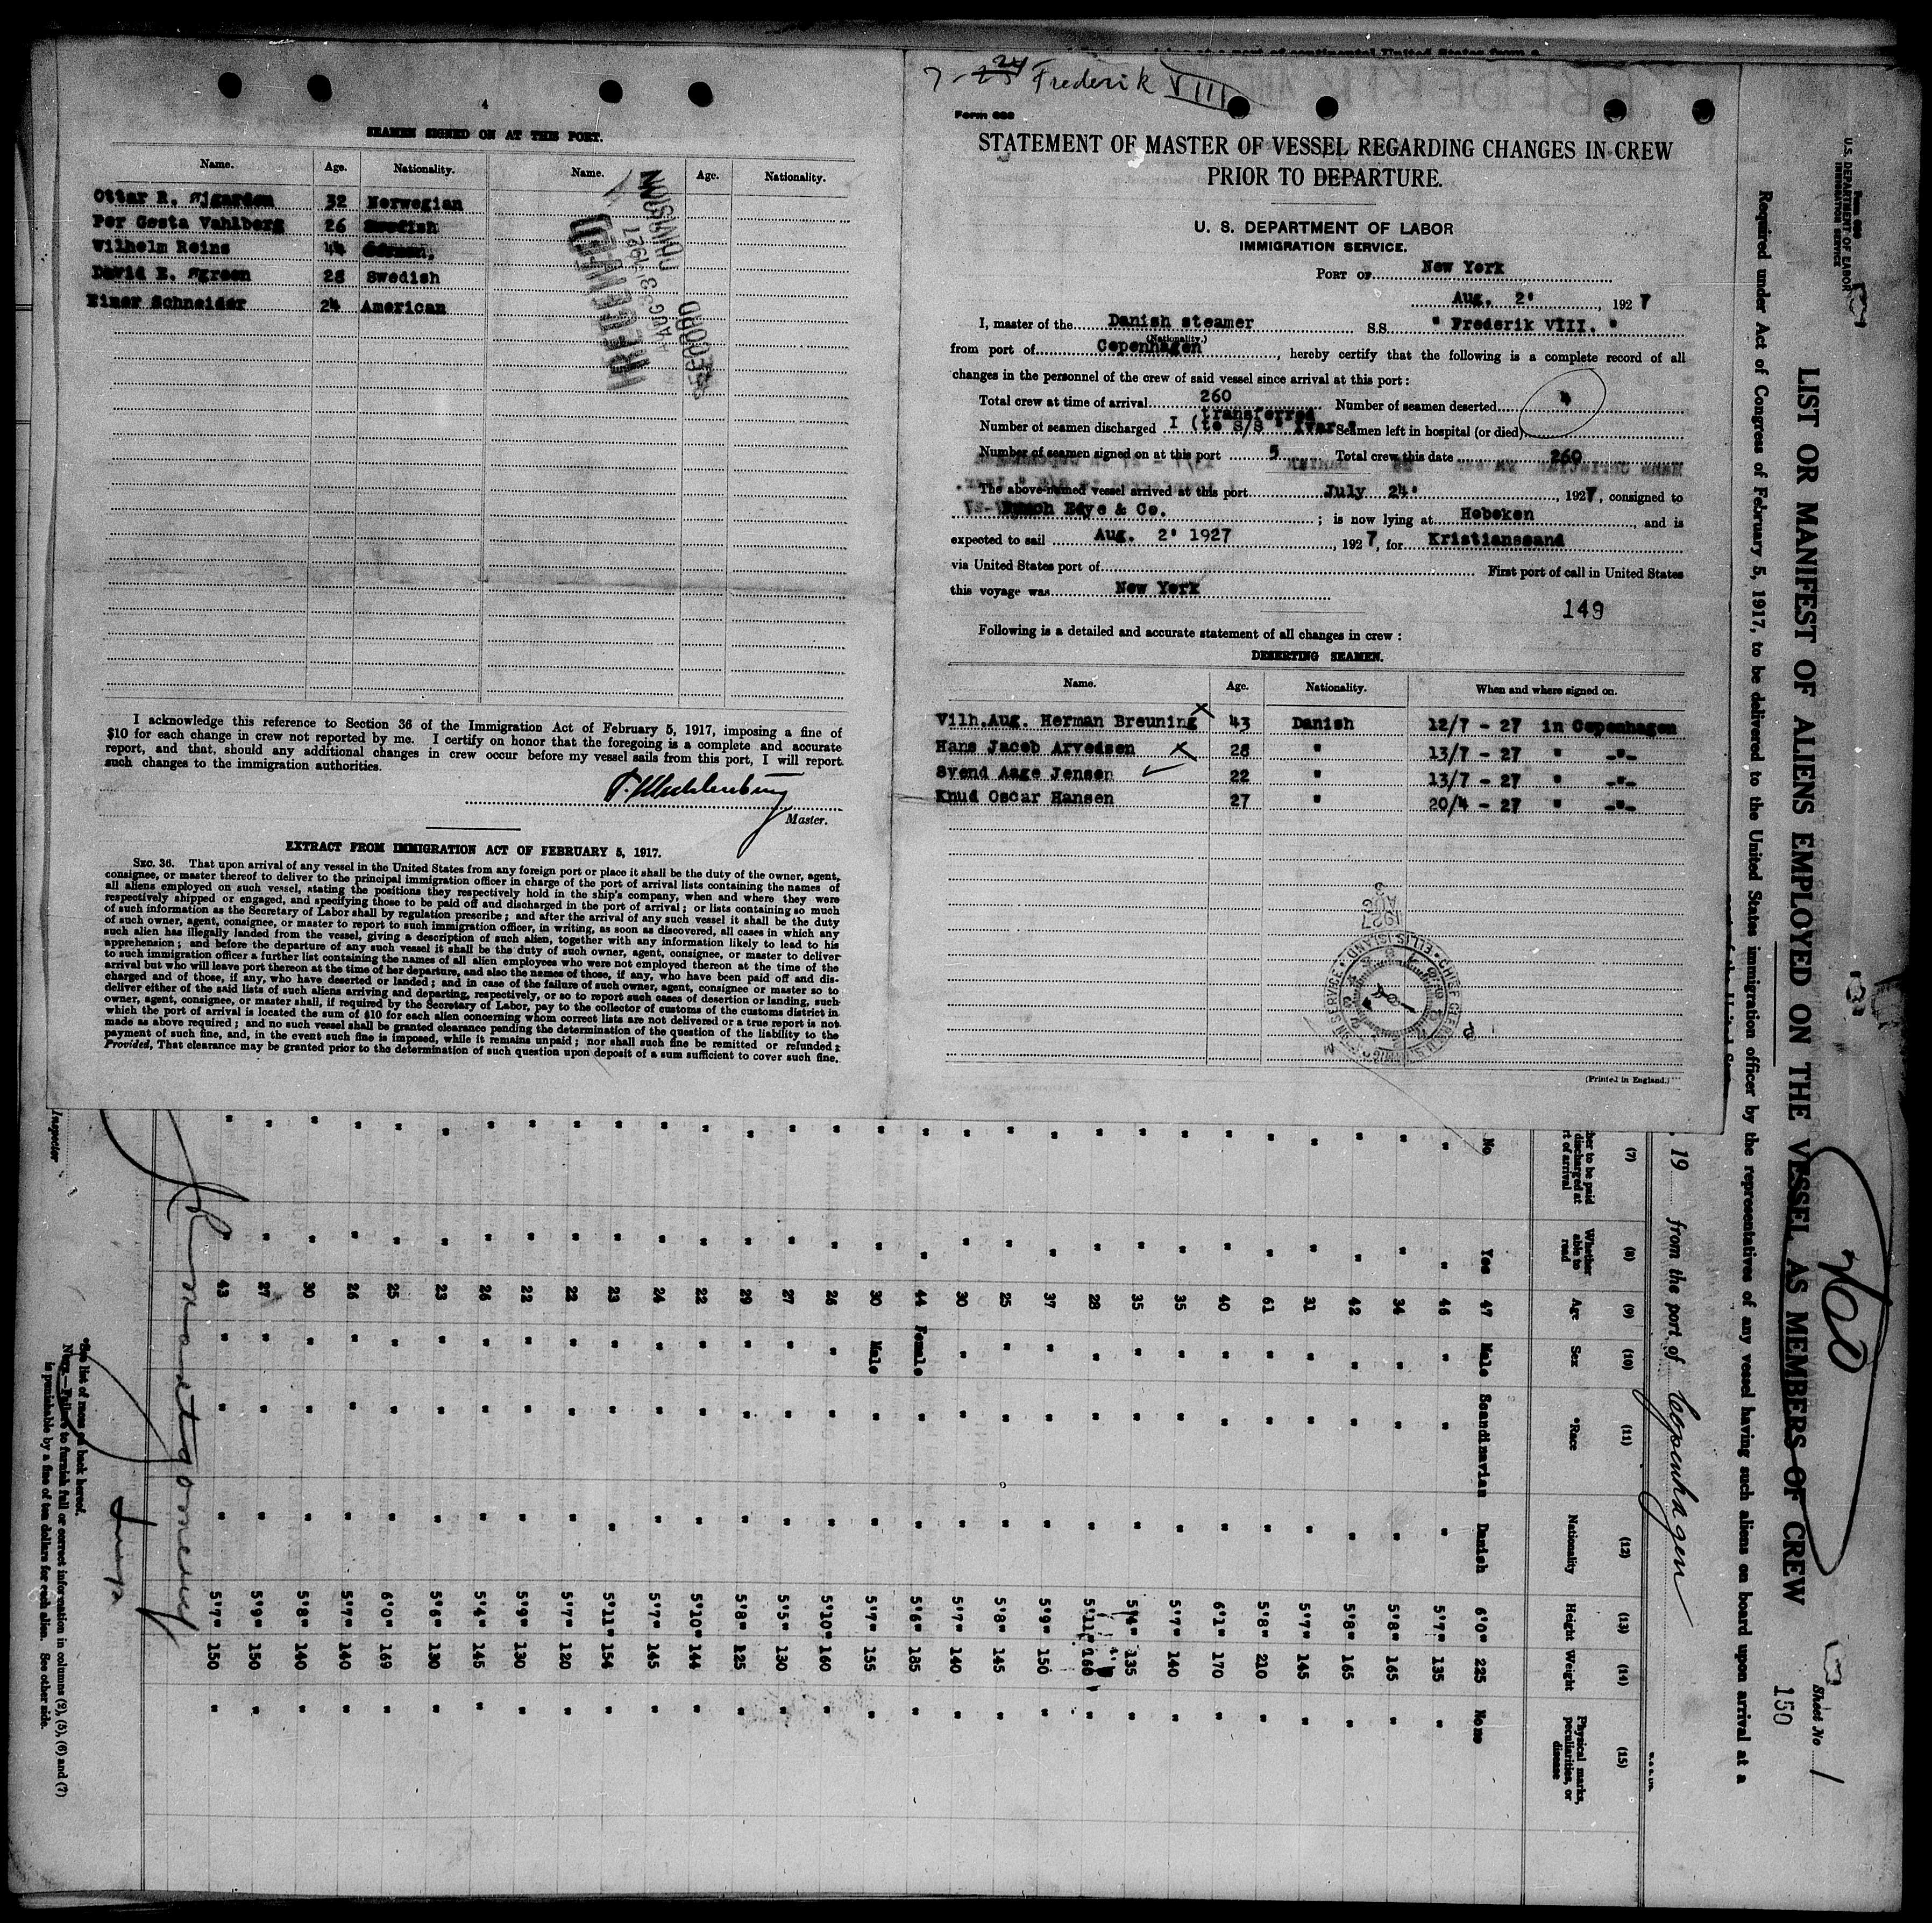 4
SEAMEN SIGNED ON AT THIS PORT.
Name. Age. Nationality. Name. Age. Nationality.
Ottar R. 32 Norwegian
Per Gosta Vahlberg 26 Swedish
Wilhelm Reins 44 German,
David E. 28 Swedish
Elmer Schneider 24 American
AUG 3 1927
RECORD DIVISION
I acknowledge this reference to Section 36 of the Immigration Act of February 5, 1917, imposing a fine of
$10 for each change in crew not reported by me. I certify on honor that the foregoing is a complete and accurate
report, and that, should any additional changes in crew occur before my vessel sails from this port, I will report
such changes to the immigration authorities.
Master.
EXTRACT FROM IMMIGRATION ACT OF FEBRUARY 5, 1917.
SEC. 36. That upon arrival of any vessel in the United States from any foreign port or place it shall be the duty of the owner, agent,
consignee, or master thereof to deliver to the principal immigration officer in charge of the port of arrival lists containing the names of
all aliens employed on such vessel, stating the positions they respectively hold in the ship's company, when and where they were
respectively shipped or engaged, and specifying those to be paid off and discharged in the port of arrival; or lists containing so much
of such information as the Secretary of Labor shall by regulation prescribe; and after the arrival of any such vessel it shall be the duty
of such owner, agent, consignee, or master to report to such immigration officer, in writing, as soon as discovered, all cases in which any
such alien has illegally landed from the vessel, giving a description of such alien, together with any information likely to lead to his
apprehension; and before the departure of any such vessel it shall be the duty of such owner, agent, consignee, or master to deliver
to such immigration officer a further list containing the names of all alien employees who were not employed thereon at the time of the
arrival but who will leave port thereon at the time of her departure, and also the names of those, if any, who have been paid off and dis-
charged and of those, if any, who have deserted or landed; and in case of the failure of such owner, agent, consignee or master so to
deliver either of the said lists of such aliens arriving and departing, respectively, or so to report such cases of desertion or landing, such
owner, agent, consignee, or master shall, if required by the Secretary of Labor, pay to the collector of customs of the customs district in
which the port of arrival is located the sum of $10 for each alien concerning whom correct lists are not delivered or a true report is not
made as above required; and no such vessel shall be granted clearance pending the determination of the question of the liability to the
payment of such fine, and, in the event such fine is imposed, while it remains unpaid; nor shall such fine be remitted or refunded:
Provided, That clearance may be granted prior to the determination of such question upon deposit of a sum sufficient to cover such fine.
7-24 Frederik VIII
Form 689
STATEMENT OF MASTER OF VESSEL REGARDING CHANGES IN CREW
PRIOR TO DEPARTURE.
U. S. DEPARTMENT OF LABOR
IMMIGRATION SERVICE.
PORT OF New York
Aug. 2' , 1927
I, master of the Danish steamer S.S. " Frederik VIII. "
(Nationality.)
from port of Copenhagen , hereby certify that the following is a complete record of all
changes in the personnel of the crew of said vessel since arrival at this port:
Total crew at time of arrival 260 Number of seamen deserted 4
transferred
Number of seamen discharged I (to S/S " Ivar " Seamen left in hospital (or died)
Number of seamen signed on at this port 5 Total crew this date 260
The above-named vessel arrived at this port July 24' , 1927, consigned to
Funch Edye & Co. ; is now lying at Hoboken , and is
expected to sail Aug. 2' 1927 , 1927, for Kristianssand
via United States port of First port of call in United States
this voyage was New York
149
Following is a detailed and accurate statement of all changes in crew:
DESERTING SEAMEN.
Name. Age. Nationality. When and where signed on.
Vilh.Aug. Herman Breuning X 43 Danish 12/7 - 27 in Copenhagen
Hans Jacob Arvedsen X 28 " 13/7 - 27 " -"-
Svend Aage Jensen ✓ 22 " 13/7 - 27 " -"-
Knud Oscar Hansen 27 " 20/4 - 27 " -"-
AUG 3 1927
ELLIS ISLAND
(Printed in England.)
Form 689
U.S. DEPARTMENT OF LABOR
IMMIGRATION SERVICE
LIST OR MANIFEST OF ALIENS EMPLOYED ON THE VESSEL AS MEMBERS OF CREW
Sheet No 1
150
Required under Act of Congress of February 5, 1917, to be delivered to the United States immigration officer by the representatives of any vessel having such aliens on board upon arrival at a
, 19 from the port of Copenhagen
(7) (8) (9) (10) (11) (12) (13) (14) (15)
her to be paid discharged at rt of arrival Whether able to read Age Sex *Race Nationality Height Weight Physical marks, peculiarities, or disease
No Yes 47 Male Scandinavian Danish 6'0" 225 None
" " 46 " " " 5'7" 135 "
" " 34 " " " 5'8" 165 "
" " 42 " " " 5'8" 165 "
" " 31 " " " 5'7" 145 "
" " 61 " " " 5'8" 210 "
" " 40 " " " 6'1" 170 "
" " 35 " " " 5'7" 140 "
" " 35 " " " 5'4" 135 "
" " 28 " " " 5'11" 160 "
" " 37 " " " 5'9" 150 "
" " 25 " " " 5'8" 145 "
" " 30 " " " 5'7" 140 "
" " 44 Female " " 5'6" 185 "
" " 30 Male " " 5'7" 155 "
" " 26 " " " 5'10" 160 "
" " 27 " " " 5'5" 130 "
" " 29 " " " 5'8" 125 "
" " 22 " " " 5'10" 144 "
" " 24 " " " 5'7" 145 "
" " 23 " " " 5'11" 154 "
" " 22 " " " 5'7" 120 "
" " 22 " " " 5'9" 130 "
" " 26 " " " 5'4" 145 "
" " 23 " " " 5'6" 130 "
" " 25 " " " 6'0" 169 "
" " 26 " " " 5'7" 140 "
" " 30 " " " 5'8" 140 "
" " 27 " " " 5'9" 150 "
" " 43 " " " 5'7" 150 "
*See list of races on back hereof.
NOTE.—Failure to furnish full or correct information in columns (2), (5), (6) and (7)
is punishable by a fine of ten dollars for each alien. See other side.
Inspector